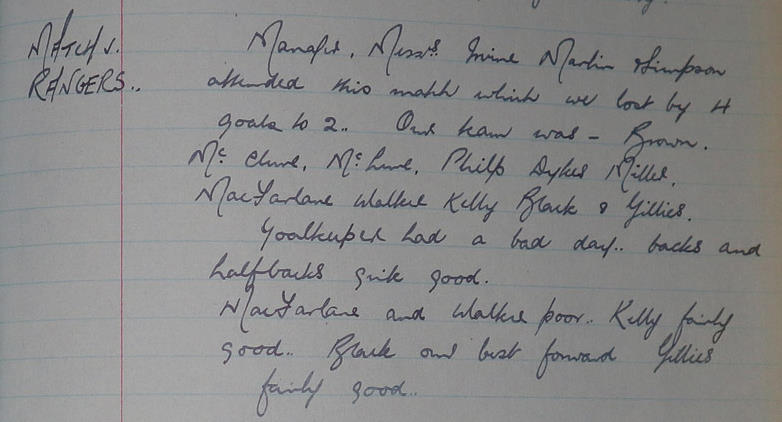 MATCH v.
RANGERS..
Manager, Messrs Irvine Martin & Simpson
attended this match which we lost by 4
goals to 2.. Our team was – Brown.
Mc Clure, Mc Lure, Philp Dykes Miller,
MacFarlane Walker Kelly Black & Gillies.
Goalkeeper had a bad day.. backs and
halfbacks quite good.
MacFarlane and Walker poor.. Kelly fairly
good.. Black our best forward Gillies
fairly good..